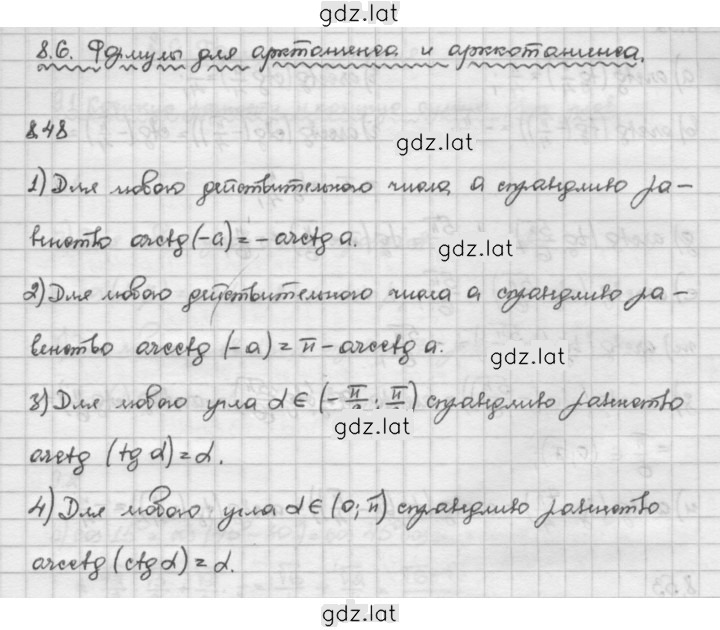 gdz.lat
8.6. Формулы для арктангенса и арккотангенса.
8.48
gdz.lat
1) Для любого действительного числа a справедливо ра-
венство arctg(-a) = -arctg a.
gdz.lat
2) Для любого действительного числа a справедливо ра-
венство arcctg (-a) = π - arcctg a.
gdz.lat
3) Для любого угла α ∈ (-π/2; π/2) справедливо равенство
gdz.lat
arctg (tg α) = α.
4) Для любого угла α ∈ (0; π) справедливо равенство
arcctg (ctg α) = α.
gdz.lat
gdz.lat